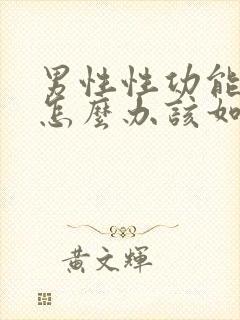 男性性功能
怎麼办該如
黃文輝